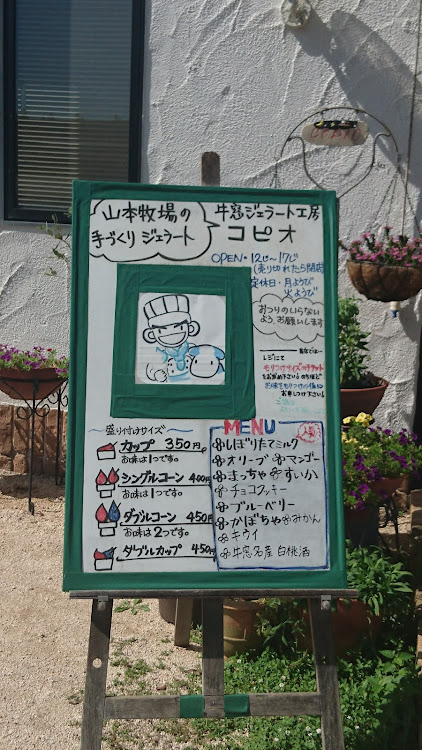 山本牧場の
手づくりジェラート
牛窓ジェラート工房
コピオ
OPEN・12じ〜17じ
(売り切れたら閉店)
定休日・月ようび
火ようび
おつりのいらない
よう、お願いします
レジにて
もりつけサイズのチケット
〜盛り付けサイズ〜
カップ 350円
お味は1つです。
シングルコーン 400円
お味は1つです。
ダブルコーン 450円
お味は2つです。
ダブルカップ 450円
MENU
しぼりたてミルク
オリーブ マンゴー
まっちゃ すいか
チョコクッキー
ブルーベリー
かぼちゃ みかん
キウイ
牛窓名産 白桃酒